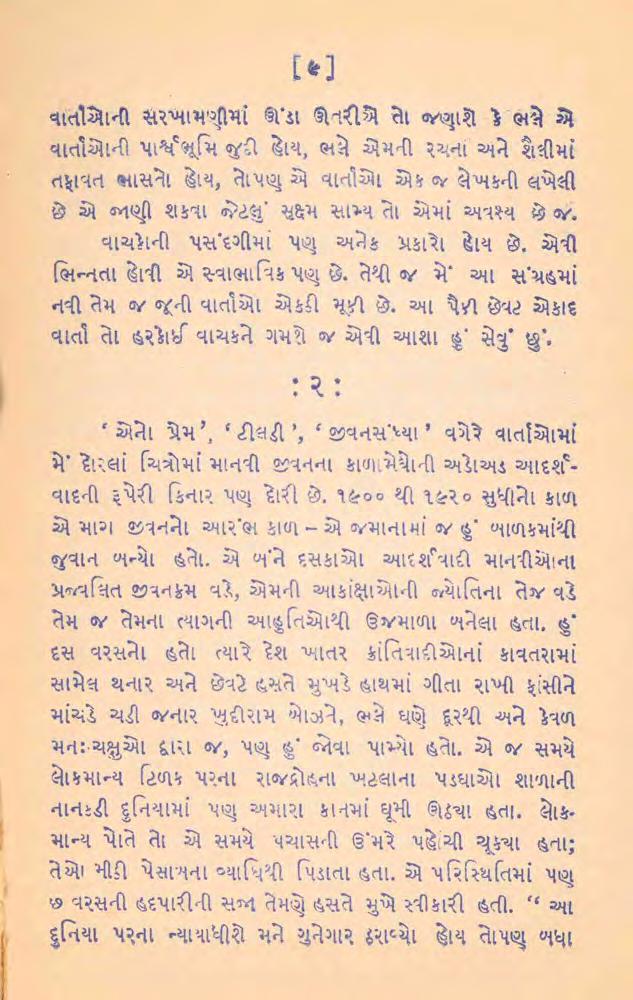 [૯]
વાર્તાઓની સરખામણીમાં ઊંડા ઊતરીએ તો જણાશે કે ભલે એ
વાર્તાઓની પાર્શ્વભૂમિ જુદી હોય, ભલે એમની રચના અને શૈલીમાં
તફાવત ભાસતો હોય, તોપણ એ વાર્તાઓ એક જ લેખકની લખેલી
છે એ જાણી શકવા જેટલું સૂક્ષ્મ સામ્ય તો એમાં અવશ્ય છે જ.
વાચકોની પસંદગીમાં પણ અનેક પ્રકારો હોય છે. એવી
ભિન્નતા હોવી એ સ્વાભાવિક પણ છે. તેથી જ મેં આ સંગ્રહમાં
નવી તેમ જ જૂની વાર્તાઓ એકઠી મૂકી છે. આ પૈકી છેવટ એકાદ
વાર્તા તો હરકોઈ વાચકને ગમશે જ એવી આશા હું સેવું છું.
: ૨ :
‘ એનો પ્રેમ ’, ‘ ટીલડી ’, ‘ જીવનસંધ્યા ’ વગેરે વાર્તાઓમાં
મેં દોરલાં ચિત્રોમાં માનવી જીવનના કાળામેઘોની અડોઅડ આદર્શ-
વાદની રૂપેરી કિનાર પણ દોરી છે. ૧૯૦૦ થી ૧૯૨૦ સુધીનો કાળ
એ મારા જીવનનો આરંભ કાળ – એ જમાનામાં જ હું બાળકમાંથી
જુવાન બન્યો હતો. એ બંને દસકાઓ આદર્શવાદી માનવીઓના
પ્રજ્વલિત જીવનક્રમ વડે, એમની આકાંક્ષાઓની જ્યોતિના તેજ વડે
તેમ જ તેમના ત્યાગની આહુતિઓથી ઉજમાળા બનેલા હતા. હું
દસ વરસનો હતો ત્યારે દેશ ખાતર ક્રાંતિવાદીઓનાં કાવતરામાં
સામેલ થનાર અને છેવટે હસતે મુખડે હાથમાં ગીતા રાખી ફાંસીને
માંચડે ચડી જનાર ખુદીરામ બોઝને, ભલે ઘણે દૂરથી અને કેવળ
મનઃચક્ષુઓ દ્વારા જ, પણ હું જોવા પામ્યો હતો. એ જ સમયે
લોકમાન્ય ટિળક પરના રાજદ્રોહના ખટલાના પડઘાઓ શાળાની
નાનકડી દુનિયામાં પણ અમારા કાનમાં ઘૂમી ઊઠ્યા હતા. લોક-
માન્ય પોતે તો એ સમયે પચાસની ઉંમરે પહોંચી ચૂક્યા હતા;
તેઓ મીઠી પેસાબના વ્યાધિથી પિડાતા હતા. એ પરિસ્થિતિમાં પણ
છ વરસની હદપારીની સજા તેમણે હસતે મુખે સ્વીકારી હતી. “ આ
દુનિયા પરના ન્યાયાધીશે મને ગુનેગાર ઠરાવ્યો હોય તોપણ બધા